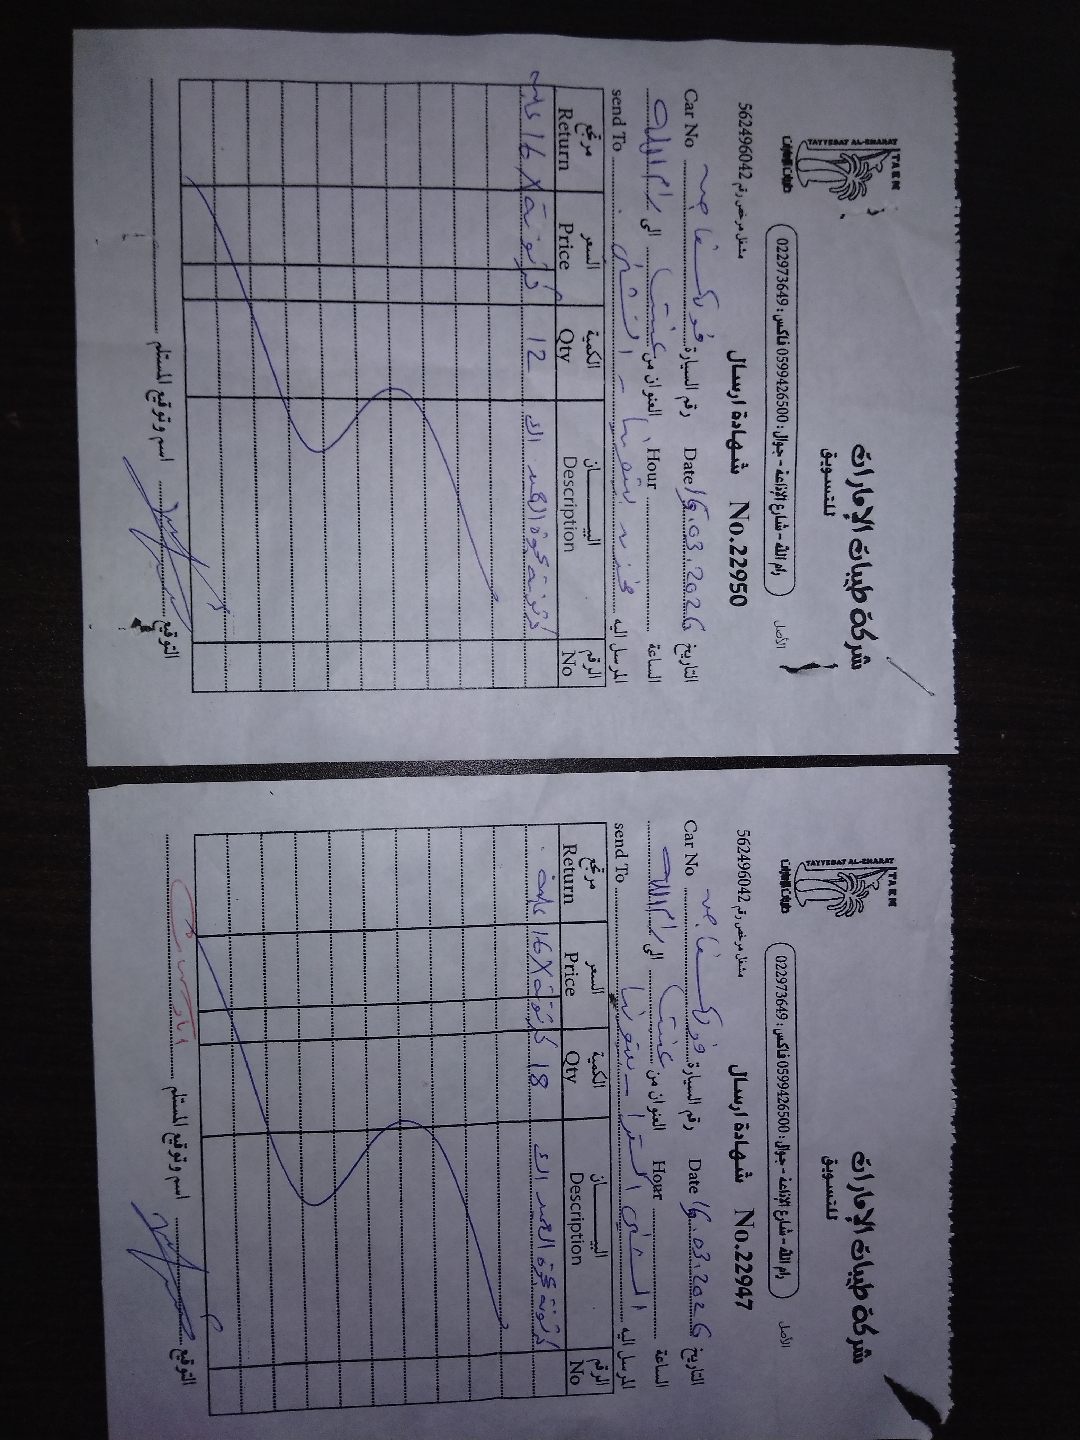 شركة طيبات الإمارات
للتسويق
TAYYEBAT AL-EMARAT
TAEM
رام الله - شارع الإذاعة - جوال : 0599426500 فاكس : 022973649
الأصل
شهادة ارسال No.22950
مشتغل مرخص رقم 562496042
التاريخ Date 16.03.2026 رقم السيارة Car No
الساعة Hour العنوان من الى رام الله
المرسل اليه send To
الرقم البيـــــــان الكمية السعر مرتجع
No Description Qty Price Return
كرتونة عجوة 12 كرتونة X 16 علبة
التوقيع اسم وتوقيع المستلم
شركة طيبات الإمارات
للتسويق
TAYYEBAT AL-EMARAT
TAEM
رام الله - شارع الإذاعة - جوال : 0599426500 فاكس : 022973649
الأصل
شهادة ارسال No.22947
مشتغل مرخص رقم 562496042
التاريخ Date 16.03.2026 رقم السيارة Car No
الساعة Hour العنوان من الى رام الله
المرسل اليه send To
الرقم البيـــــــان الكمية السعر مرتجع
No Description Qty Price Return
كرتونة عجوة 18 كرتونة X 16 علبة
التوقيع اسم وتوقيع المستلم